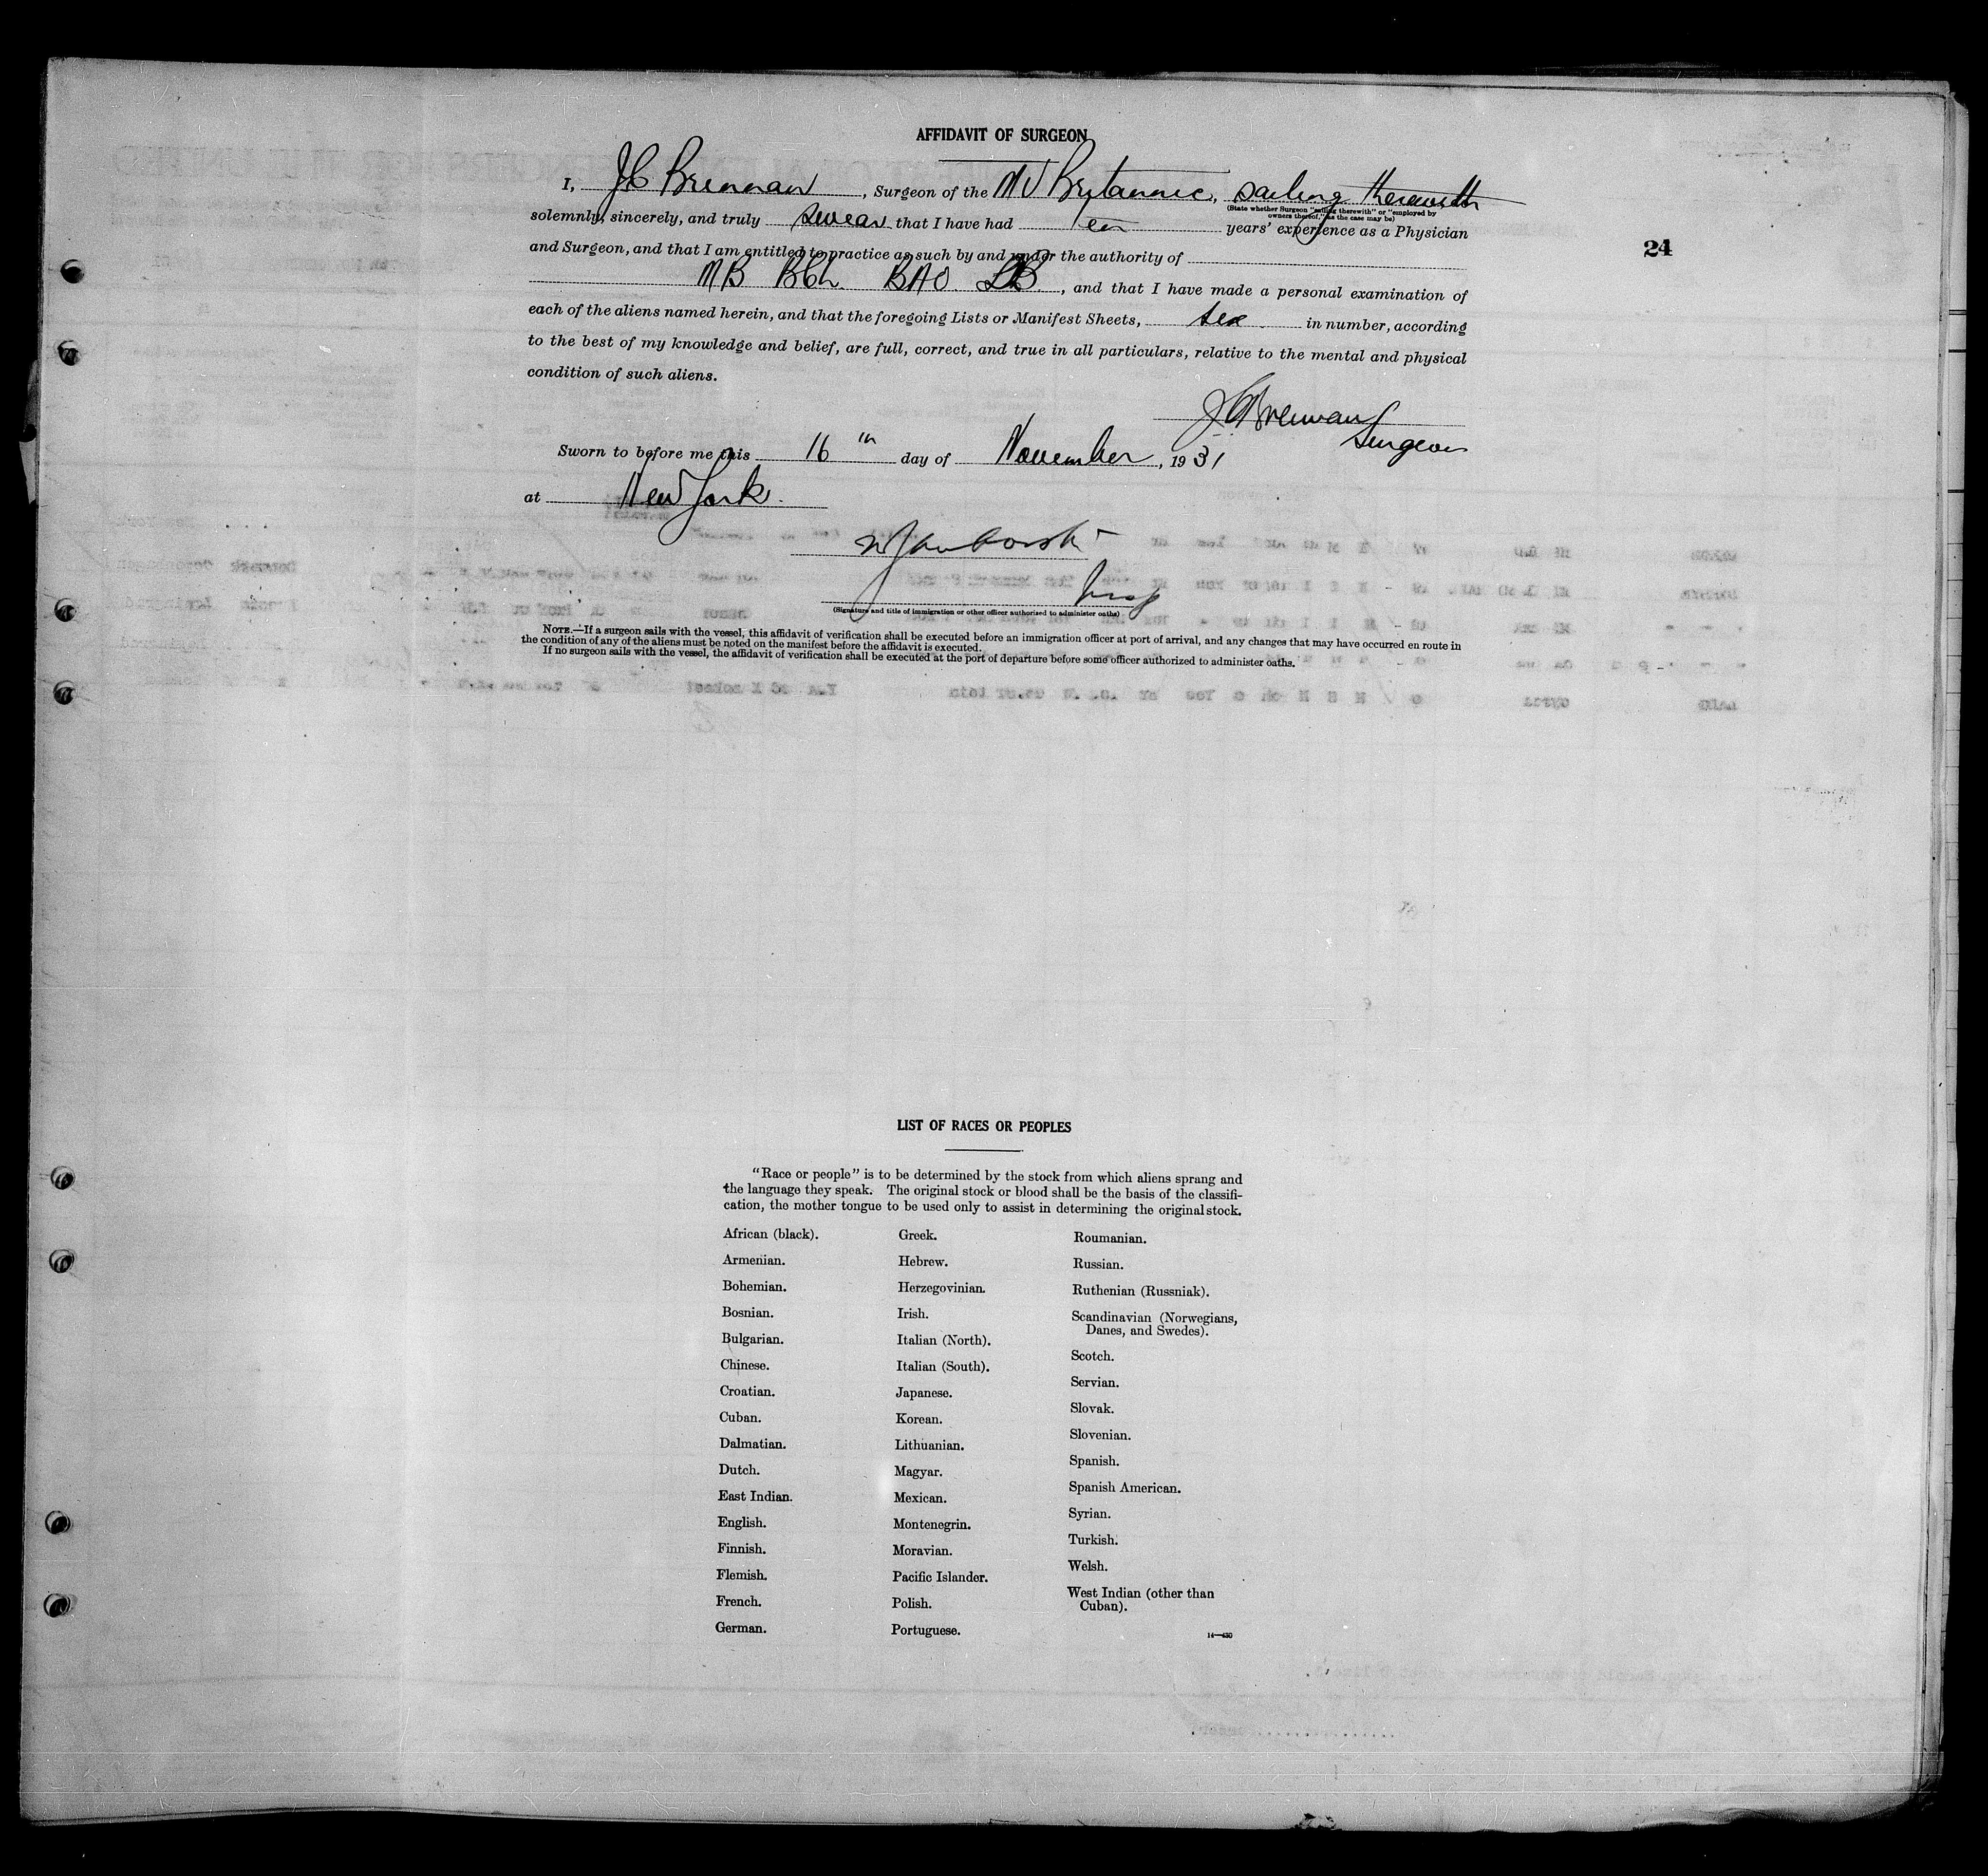 AFFIDAVIT OF SURGEON
I, J C Brennan, Surgeon of the MV Britannic, sailing therewith
(State whether Surgeon "sailing therewith" or "employed by
owners thereof," as the case may be)
solemnly, sincerely, and truly swear that I have had years' experience as a Physician
24
and Surgeon, and that I am entitled to practice as such by and under the authority of
MB BCh. BAO., and that I have made a personal examination of
each of the aliens named herein, and that the foregoing Lists or Manifest Sheets, in number, according
to the best of my knowledge and belief, are full, correct, and true in all particulars, relative to the mental and physical
condition of such aliens.
J C Brennan
Surgeon
Sworn to before me this 16th day of November, 1931
at New York.
(Signature and title of immigration or other officer authorized to administer oaths)
NOTE.—If a surgeon sails with the vessel, this affidavit of verification shall be executed before an immigration officer at port of arrival, and any changes that may have occurred en route in
the condition of any of the aliens must be noted on the manifest before the affidavit is executed.
If no surgeon sails with the vessel, the affidavit of verification shall be executed at the port of departure before some officer authorized to administer oaths.
LIST OF RACES OR PEOPLES
"Race or people" is to be determined by the stock from which aliens sprang and
the language they speak. The original stock or blood shall be the basis of the classifi-
cation, the mother tongue to be used only to assist in determining the original stock.
African (black).
Armenian.
Bohemian.
Bosnian.
Bulgarian.
Chinese.
Croatian.
Cuban.
Dalmatian.
Dutch.
East Indian.
English.
Finnish.
Flemish.
French.
German.
Greek.
Hebrew.
Herzegovinian.
Irish.
Italian (North).
Italian (South).
Japanese.
Korean.
Lithuanian.
Magyar.
Mexican.
Montenegrin.
Moravian.
Pacific Islander.
Polish.
Portuguese.
Roumanian.
Russian.
Ruthenian (Russniak).
Scandinavian (Norwegians,
Danes, and Swedes).
Scotch.
Servian.
Slovak.
Slovenian.
Spanish.
Spanish American.
Syrian.
Turkish.
Welsh.
West Indian (other than
Cuban).
14—430